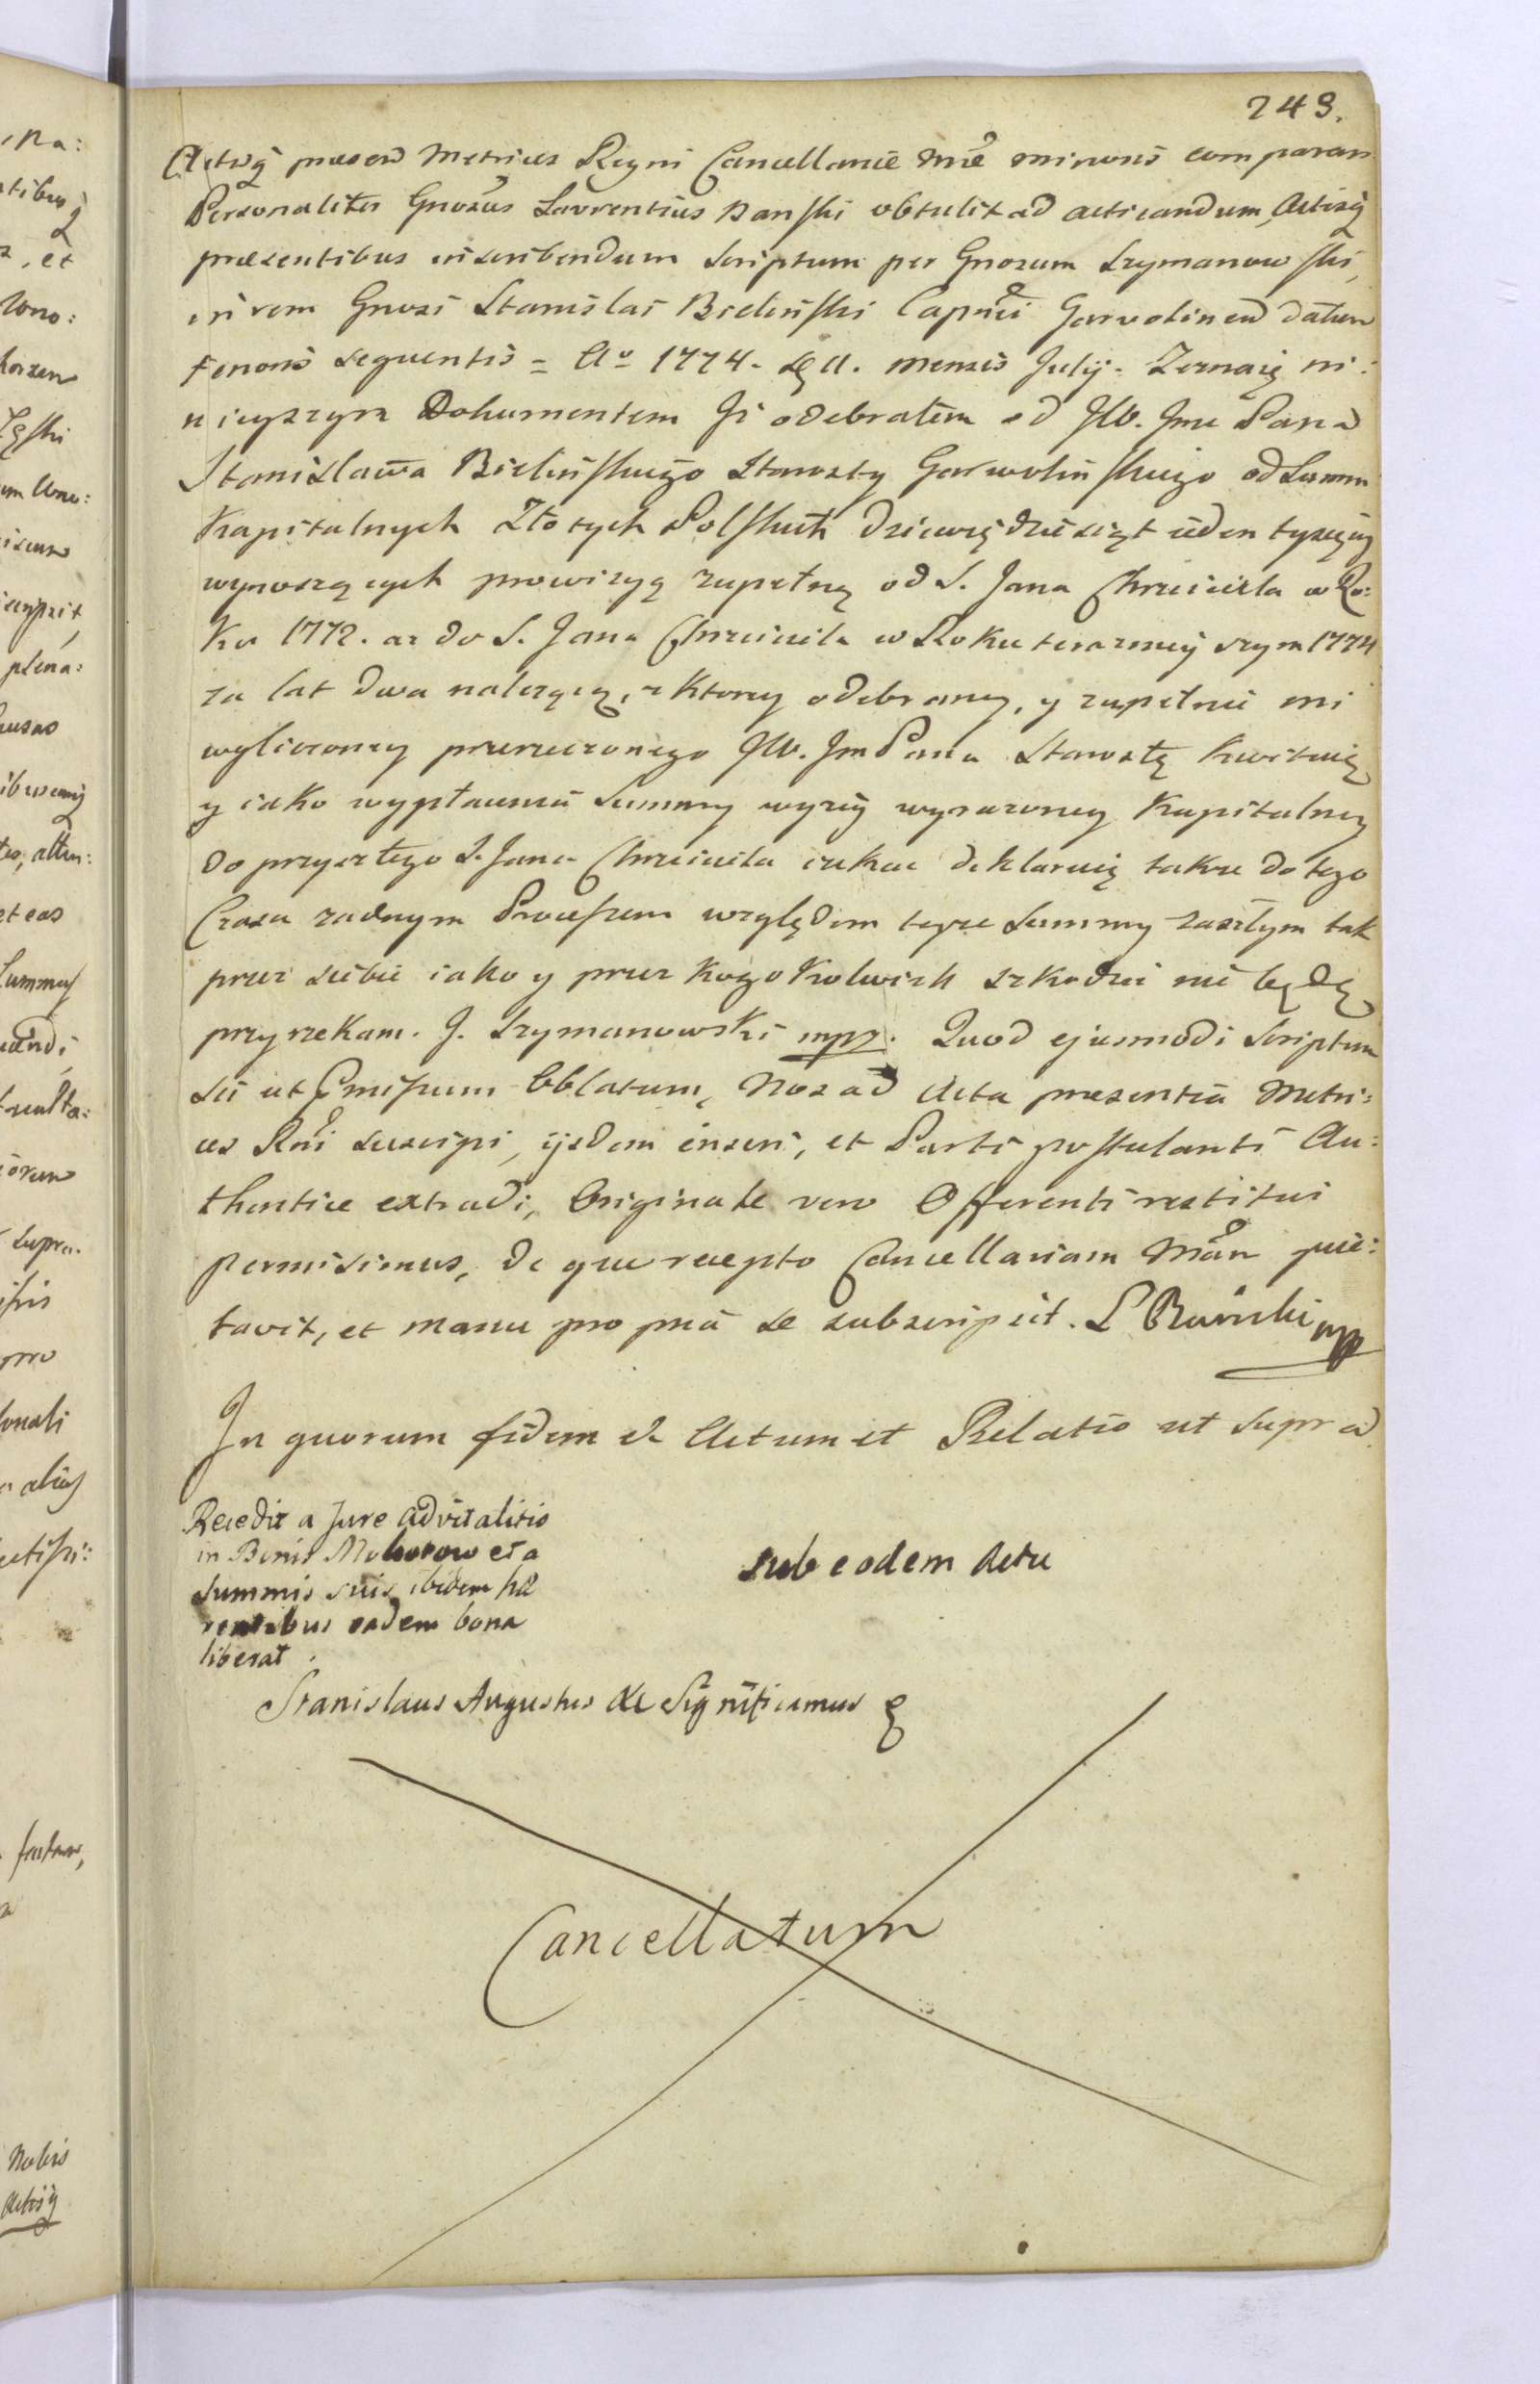 243.
Actisq̃ præsen̄ Metrices Regni Cancellariæ Mrĩs minoris comparen
Personaliter Gnosũs Laurentius Banski obtulit ad acticandum, Actisq̃
præsentibus inscribendum Scriptum per Gnosum Szymanowski,
in rem Gnosi Stanislai Bieliński Capnei Garvolinen̄ datum
tenoris sequentis = Aᵒ 1774. d. 11. mensis Julij. Zeznaię ni:
nieyszym Dokumentem Iż odebrałem od JW. Jmc Pana
Stanisława Bielińskiego Starosty Garwolińskiego od Summ
Kapitalnych Złotych Polskich dziewiędziesiąt ieden tysięcy
wynoszących prowizyą zupełną od S. Jana Chrzciciela w Ro:
ku 1772. aż do S. Jana Chrzciciela w Roku teraznieyszym 1774
za lat dwa należącą, z ktorey odebraney, y zupełnie mi
wyliczoney przerzeczonego JW. Jm Pana Starostę kwituię
y iako wypłacenia Summy wyżey wyrażoney Kapitalney
do przyszłego S. Jana Chrzciciela czekać deklaruię także do tego
Czasu żadnym Processem względem teyże Summy zaszłym tak
przez siebie iako y przez kogokolwiek szkodzić nie będę
przyrzekam. J. Szymanowski mpr. Quod ejusmodi Scriptum
sic ut Præmissum Oblatum, Nos ad Acta præsentia Metri:
ces Rni suscipi, ijsdem inseri, et Parti postulanti Au:
thentice extradi, Originale vero Offerenti restitui
permisimus, de quo recepto Cancellariam Mãn quie:
tavit, et manu pro pria se subscripsit. L Bański mp
In quorum fidem & Actum et Relatio ut supra
Recedit a Jure advitalitio
in Bonis Mokorow et a
summis suis ibidem hæ
rentibus eadem bona
liberat.
sub eodem Actu
Stanislaus Augustus &c Significamus
Cancellatum